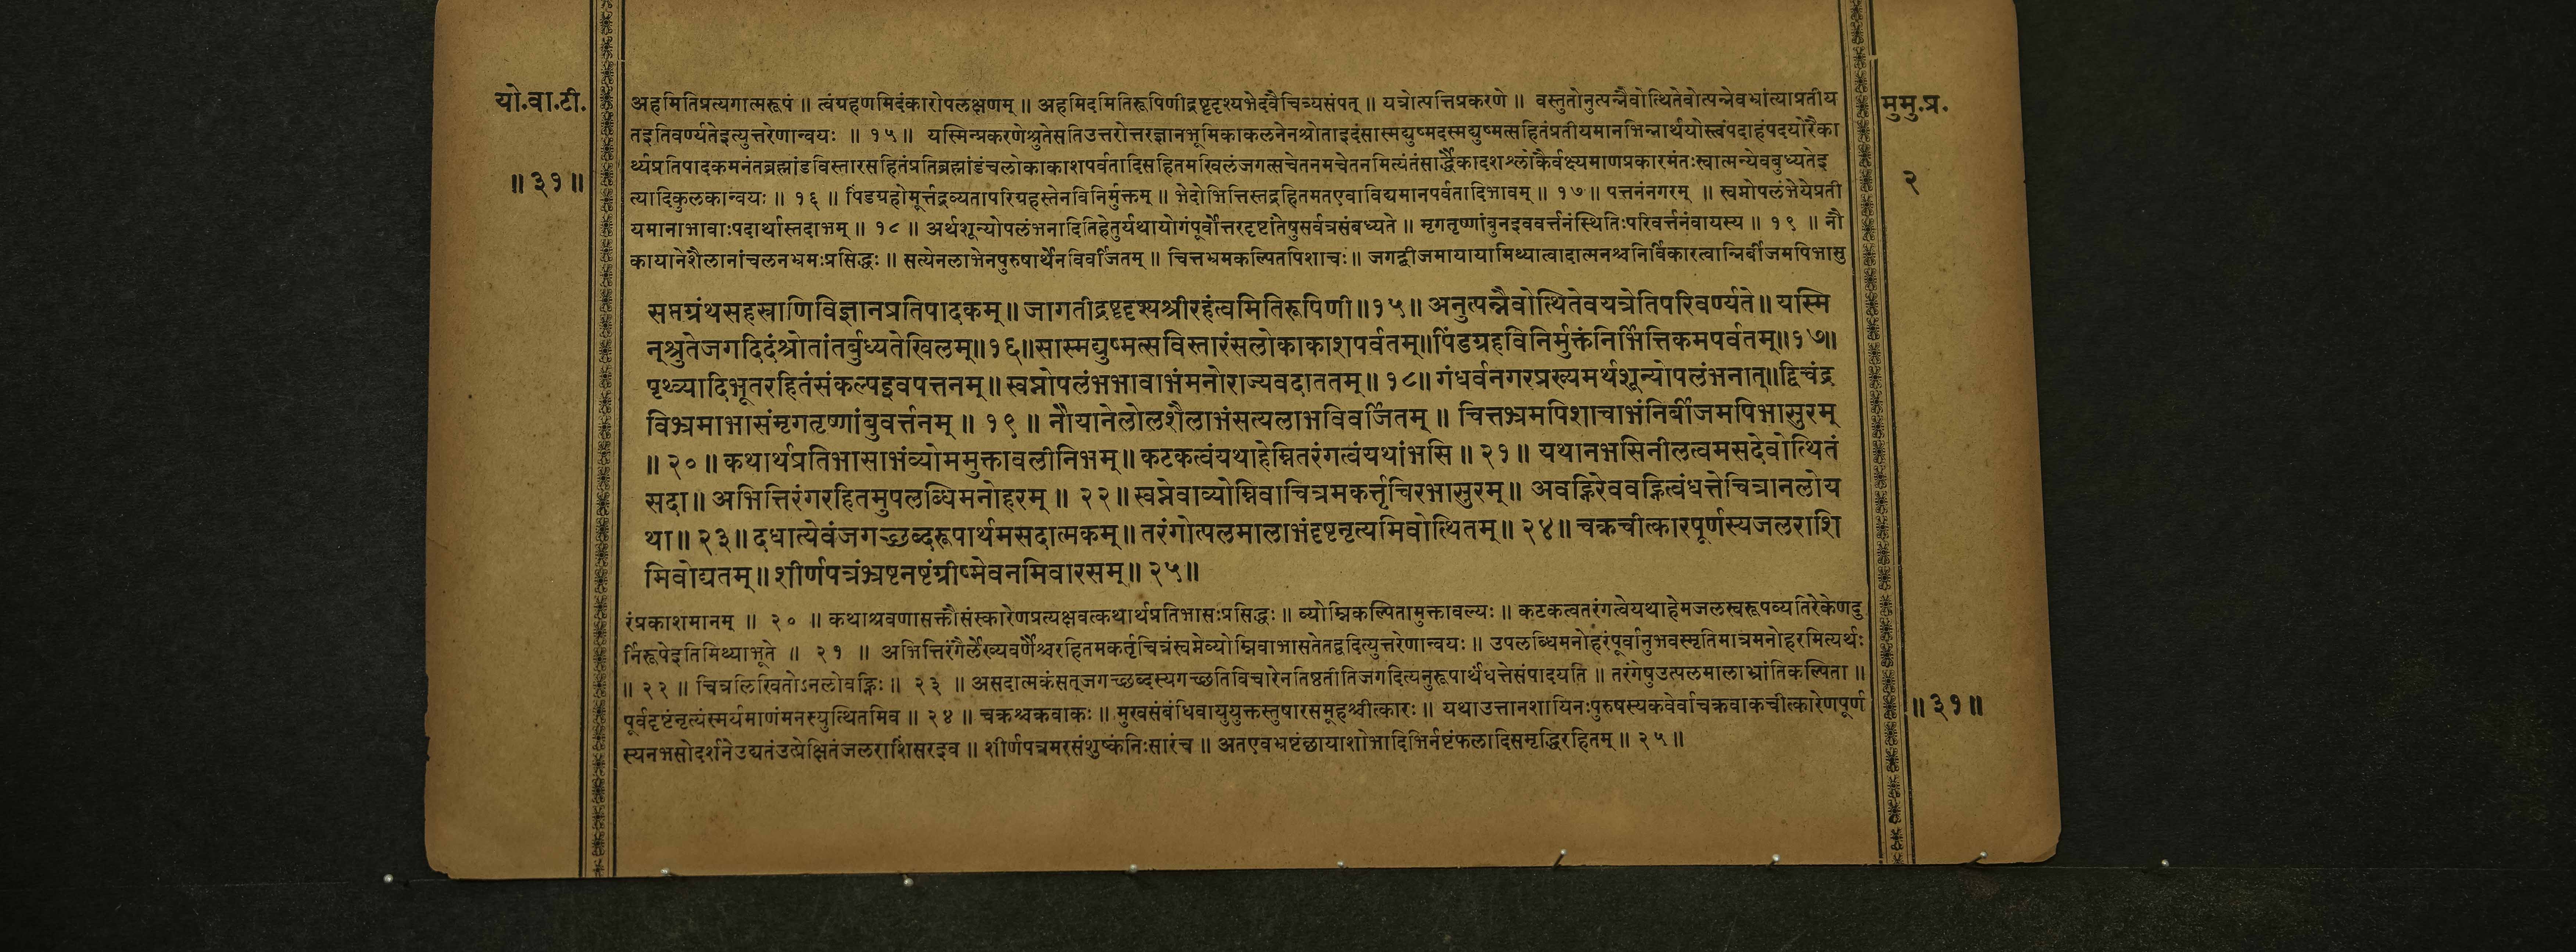 यो.वा.टी.
॥ ३१ ॥
अहमितिप्रत्यगात्मरूपं ॥ त्वंग्रहणमिदंकारोपलक्षणम् ॥ अहमिदमितिरूपिणीद्रष्टृदृश्यभेदवैचित्र्यसंपत् ॥ यत्रोत्पत्तिप्रकरणे ॥ वस्तुतोनुत्पन्नैवोत्थितेवोत्पन्नेवभ्रांत्याप्रतीय
तइतिवर्ण्यतेइत्युत्तरेणान्वयः ॥ १५ ॥ यस्मिन्प्रकरणेश्रुतेसतिउत्तरोत्तरज्ञानभूमिकाकलनेनश्रोताइदंसास्मद्युष्मदस्मद्युष्मत्सहितंप्रतीयमानभिन्नार्थयोस्त्वंपदाहंपदयोरैका
र्थ्यप्रतिपादकमनंतब्रह्मांडविस्तारसहितंप्रतिब्रह्मांडंचलोकाकाशपर्वतादिसहितमखिलंजगत्सचेतनमचेतनमित्यंतंसार्द्धैकादशश्लोकैर्वक्ष्यमाणप्रकारमंतःस्वात्मन्येवबुध्यतेइ
त्यादिकुलकान्वयः ॥ १६ ॥ पिंडग्रहोमूर्त्तद्रव्यतापरिग्रहस्तेनविनिर्मुक्तम् ॥ भेदोभित्तिस्तद्रहितमतएवाविद्यमानपर्वतादिभावम् ॥ १७ ॥ पत्तनंनगरम् ॥ स्वप्नोपलंभेयेप्रती
यमानाभावाःपदार्थास्तदाभम् ॥ १८ ॥ अर्थशून्योपलंभनादितिहेतुर्यथायोगंपूर्वोत्तरदृष्टांतेषुसर्वत्रसंबध्यते ॥ मृगतृष्णांबुनइववर्त्तनंस्थितिःपरिवर्त्तनंवायस्य ॥ १९ ॥ नौ
कायानेशैलानांचलनभ्रमःप्रसिद्धः ॥ सत्येनलाभेनपुरुषार्थेनविवर्जितम् ॥ चित्तभ्रमकल्पितपिशाचः ॥ जगद्बीजमायायामिथ्यात्वादात्मनश्चनिर्विकारत्वान्निर्बीजमपिभासु
सप्तग्रंथसहस्राणिविज्ञानप्रतिपादकम् ॥ जागतीद्रष्टृदृश्यश्रीरहंत्वमितिरूपिणी ॥ १५ ॥ अनुत्पन्नैवोत्थितेवयत्रेतिपरिवर्ण्यते ॥ यस्मि
न्श्रुतेजगदिदंश्रोतांतर्बुध्यतेखिलम् ॥ १६ ॥ सास्मद्युष्मत्सविस्तारंसलोकाकाशपर्वतम् ॥ पिंडग्रहविनिर्मुक्तंनिर्भित्तिकमपर्वतम् ॥ १७ ॥
पृथ्व्यादिभूतरहितंसंकल्पइवपत्तनम् ॥ स्वप्नोपलंभभावाभंमनोराज्यवदाततम् ॥ १८ ॥ गंधर्वनगरप्रख्यमर्थशून्योपलंभनात् ॥ द्विचंद्र
विभ्रमाभासंमृगतृष्णांबुवर्त्तनम् ॥ १९ ॥ नौयानेलोलशैलाभंसत्यलाभविवर्जितम् ॥ चित्तभ्रमपिशाचाभंनिर्बीजमपिभासुरम्
॥ २० ॥ कथार्थप्रतिभासाभंव्योममुक्तावलीनिभम् ॥ कटकत्वंयथाहेम्नितरंगत्वंयथांभसि ॥ २१ ॥ यथानभसिनीलत्वमसदेवोत्थितं
सदा ॥ अभित्तिरंगरहितमुपलब्धिमनोहरम् ॥ २२ ॥ स्वप्नेवाव्योम्निवाचित्रमकर्त्तृचिरभासुरम् ॥ अवह्निरेववह्नित्वंधत्तेचित्रानलोय
था ॥ २३ ॥ दधात्येवंजगच्छब्दरूपार्थमसदात्मकम् ॥ तरंगोत्पलमालाभंदृष्टनृत्यमिवोत्थितम् ॥ २४ ॥ चक्रचीत्कारपूर्णस्यजलराशि
मिवोद्यतम् ॥ शीर्णपत्रंभ्रष्टनष्टंग्रीष्मेवनमिवारसम् ॥ २५ ॥
रंप्रकाशमानम् ॥ २० ॥ कथाश्रवणासक्तौसंस्कारेणप्रत्यक्षवत्कथार्थप्रतिभासःप्रसिद्धः ॥ व्योम्निकल्पितामुक्तावल्यः ॥ कटकत्वतरंगत्वेयथाहेमजलस्वरूपव्यतिरेकेणदु
र्निरूपेइतिमिथ्याभूते ॥ २१ ॥ अभित्तिरंगैर्लेख्यवर्णैश्चरहितमकर्तृचित्रंस्वप्नेव्योम्निवाभासतेतद्वदित्युत्तरेणान्वयः ॥ उपलब्धिमनोहरंपूर्वानुभवस्मृतिमात्रमनोहरमित्यर्थः
॥ २२ ॥ चित्रलिखितोऽनलोवह्निः ॥ २३ ॥ असदात्मकंसत्जगच्छब्दस्यगच्छतिविचारेनतिष्ठतीतिजगदित्यनुरूपार्थंधत्तेसंपादयति ॥ तरंगेषुउत्पलमालाभ्रांतिकल्पिता ॥
पूर्वदृष्टंनृत्यंस्मर्यमाणंमनस्युत्थितमिव ॥ २४ ॥ चक्रश्चक्रवाकः ॥ मुखसंबंधिवायुयुक्तस्तुषारसमूहश्चीत्कारः ॥ यथाउत्तानशायिनःपुरुषस्यकवेर्वाचक्रवाकचीत्कारेणपूर्ण
स्यनभसोदर्शनेउद्यतंउत्प्रेक्षितंजलराशिंसरइव ॥ शीर्णपत्रमरसंशुष्कंनिःसारंच ॥ अतएवभ्रष्टंछायाशोभादिभिर्नष्टंफलादिसमृद्धिरहितम् ॥ २५ ॥
मुमु.प्र.
२
॥ ३१ ॥